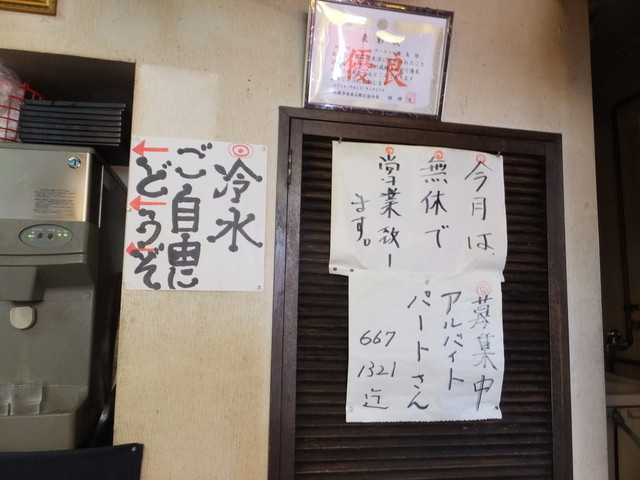 優良
冷水
ご自由に
どうぞ
今月は、
無休で
営業致し
ます。
募集中
アルバイト
パートさん
667
1321
迄